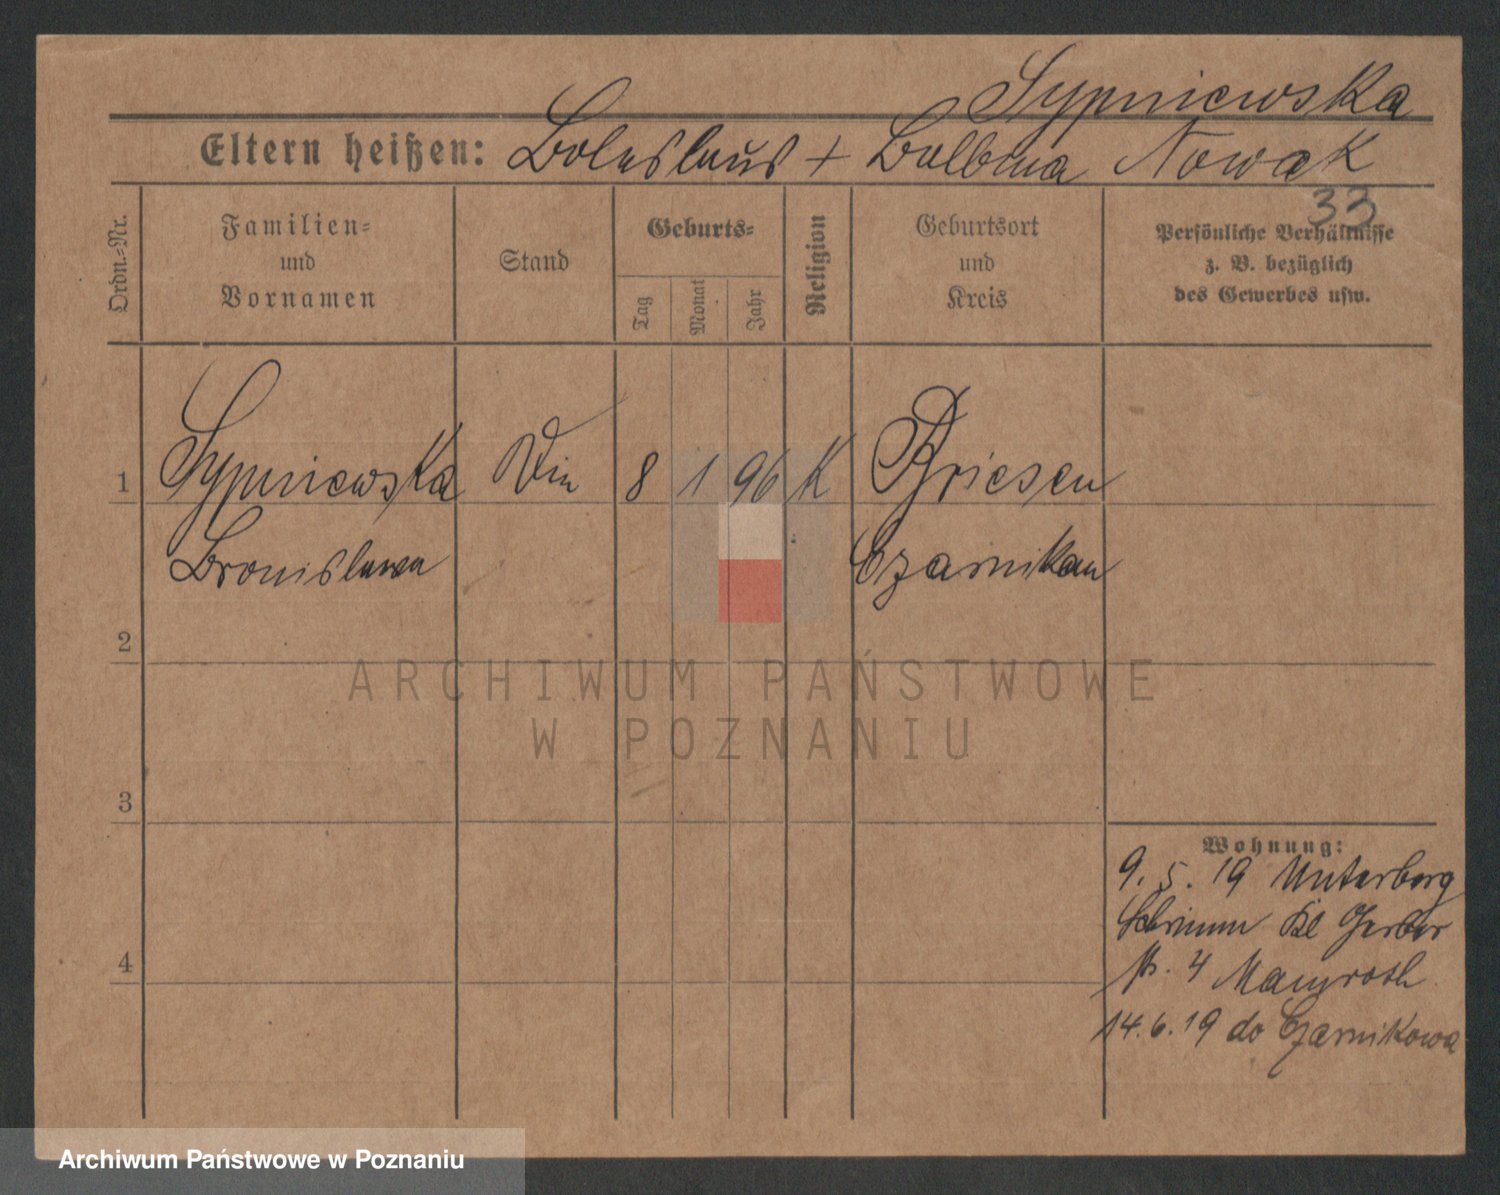 Sypniewska
Eltern heißen: Boleslaus + Balbina Nowak
33
Ordn.-Nr.
Familien-
und
Vornamen
Stand
Geburts-
Tag
Monat
Jahr
Religion
Geburtsort
und
Kreis
Persönliche Verhältnisse
z. B. bezüglich
des Gewerbes usw.
1 Sypniewska 8 1 96 K Briesen
Bronislawa Czarnikau
2
3
4
Wohnung:
9. 5. 19 Unterberg
Schrimm Kl Gerber
str. 4 Mamroth
14. 6. 19 do Czarnikowa
ARCHIWUM PAŃSTWOWE
W POZNANIU
Archiwum Państwowe w Poznaniu